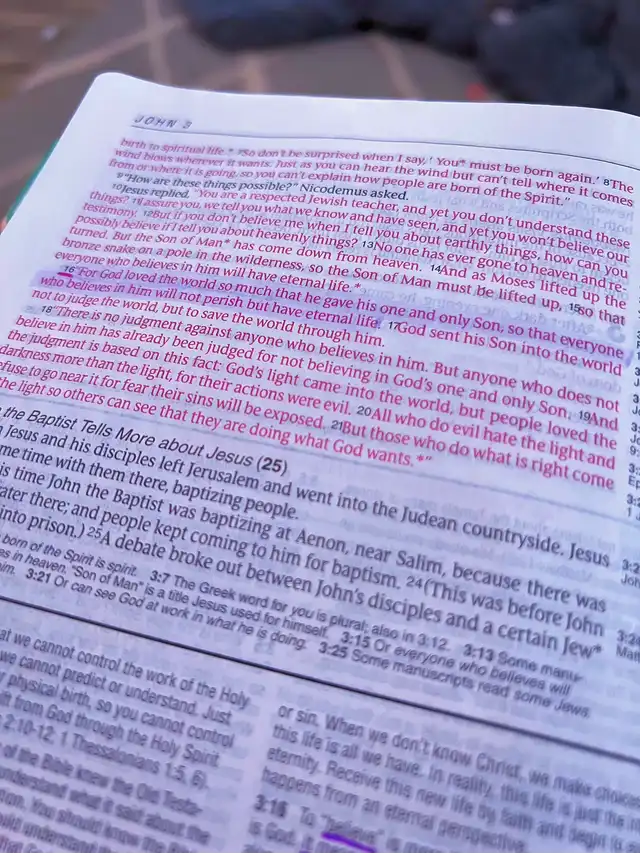 JOHN 3
birth to spiritual life.* 7So don't be surprised when I say, 'You* must be born again.' 8The
wind blows wherever it wants. Just as you can hear the wind but can't tell where it comes
from or where it is going, so you can't explain how people are born of the Spirit."
9"How are these things possible?" Nicodemus asked.
10Jesus replied, "You are a respected Jewish teacher, and yet you don't understand these
things? 11I assure you, we tell you what we know and have seen, and yet you won't believe our
testimony. 12But if you don't believe me when I tell you about earthly things, how can you
possibly believe if I tell you about heavenly things? 13No one has ever gone to heaven and re-
turned. But the Son of Man* has come down from heaven. 14And as Moses lifted up the
bronze snake on a pole in the wilderness, so the Son of Man must be lifted up, 15so that
everyone who believes in him will have eternal life.*
16"For God loved the world so much that he gave his one and only Son, so that everyone
who believes in him will not perish but have eternal life. 17God sent his Son into the world
not to judge the world, but to save the world through him.
18"There is no judgment against anyone who believes in him. But anyone who does not
believe in him has already been judged for not believing in God's one and only Son. 19And
the judgment is based on this fact: God's light came into the world, but people loved the
darkness more than the light, for their actions were evil. 20All who do evil hate the light and
refuse to go near it for fear their sins will be exposed. 21But those who do what is right come
the light so others can see that they are doing what God wants.*"
the Baptist Tells More about Jesus (25)
Jesus and his disciples left Jerusalem and went into the Judean countryside. Jesus
me time with them there, baptizing people.
is time John the Baptist was baptizing at Aenon, near Salim, because there was
ater there; and people kept coming to him for baptism. 24(This was before John
into prison.) 25A debate broke out between John's disciples and a certain Jew*
born of the Spirit is spirit. 3:7 The Greek word for you is plural; also in 3:12. 3:13 Some manu-
es in heaven. "Son of Man" is a title Jesus used for himself. 3:15 Or everyone who believes will
him. 3:21 Or can see God at work in what he is doing. 3:25 Some manuscripts read some Jews.
at we cannot control the work of the Holy
we cannot predict or understand. Just
physical birth, so you cannot control
ft from God through the Holy Spirit
2:10-12; 1 Thessalonians 1:5, 6).
of the Bible knew the Old Testa-
understand what it said about the
You should know the
understand the
or sin. When we don't know Christ, we make choices
this life is all we have. In reality, this life is just the
eternity. Receive this new life by faith and begin to
happens from an eternal perspective.
3:16 To "believe" is
is God.